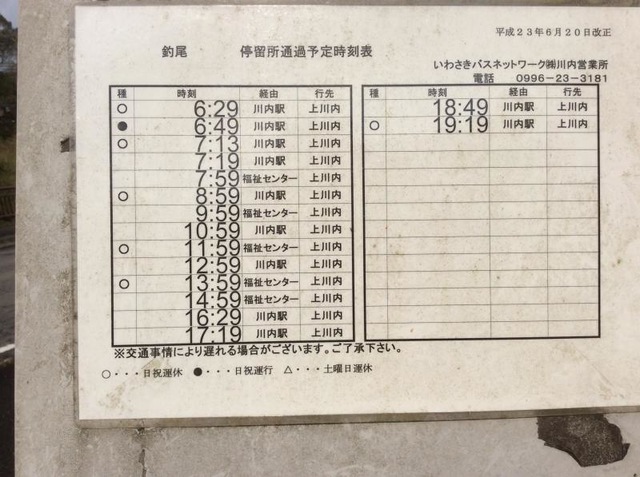 平成２３年６月２０日改正
釣尾 停留所通過予定時刻表
いわさきバスネットワーク㈱川内営業所
電話 0996-23-3181
種 時刻 経由 行先
○ 6:29 川内駅 上川内
● 6:49 川内駅 上川内
○ 7:13 川内駅 上川内
7:19 川内駅 上川内
7:59 福祉センター 上川内
○ 8:59 川内駅 上川内
9:59 福祉センター 上川内
10:59 川内駅 上川内
○ 11:59 福祉センター 上川内
12:59 川内駅 上川内
○ 13:59 福祉センター 上川内
14:59 福祉センター 上川内
16:29 川内駅 上川内
17:19 川内駅 上川内
種 時刻 経由 行先
18:49 川内駅 上川内
○ 19:19 川内駅 上川内
※交通事情により遅れる場合がございます。ご了承下さい。
○・・・日祝運休 ●・・・日祝運行 △・・・土曜日運休